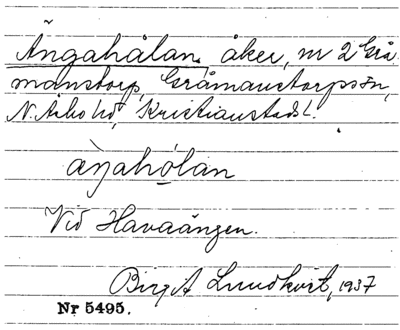 Ängahålan åker, nr 2 Grå-
manstorp, Gråmanstorps sn,
N. Åsbo hd, Kristianstads l.
àŋahólan
Vid Havaängen.
Birgit Lundkvist, 1937
Nr 5495.